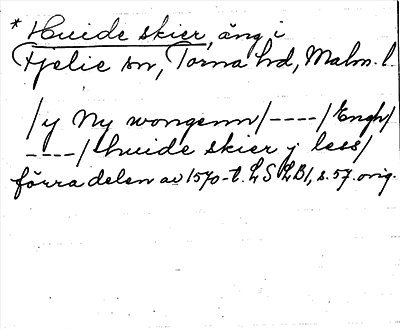 * Huide skier, äng i
Fjelie sn, Torna hd, Malm. l.
/y Ny wongenn/----/Engh/
----/huide skier y less/
förra delen av 1570-t. LSLB1, s. 57. orig.